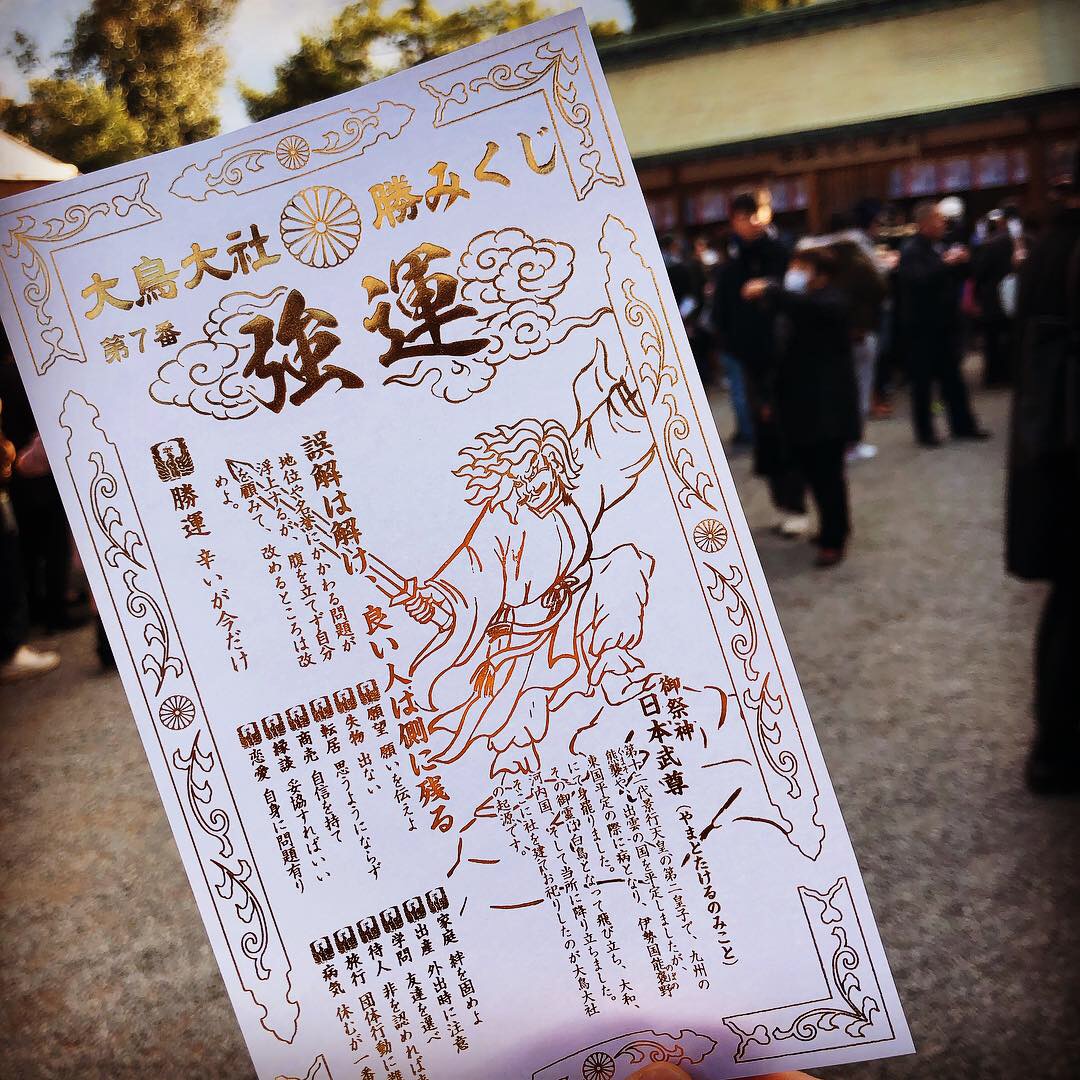 大鳥大社 勝みくじ
第7番
強運
御祭神
日本武尊(やまとたけるのみこと)
第十二代景行天皇の第二皇子で、九州の
熊襲や、出雲の国を平定しましたが、
東国平定の際に病となり、伊勢国能褒野
にて身罷りました。
その御霊は白鳥となって飛び立ち、大和、
河内国、そして当所に降り立ちました。
そこに社を建てお祀りしたのが大鳥大社
の起源です。
誤解は解け、良い人は側に残る
地位や名誉にかかわる問題が
浮上するが、腹を立てず自分
を顧みて、改めるところは改
めよ。
勝運 辛いが今だけ
願望 願いを伝えよ
失物 出ない
転居 思うようにならず
商売 自信を持て
縁談 妥協すればいい
恋愛 自身に問題有り
家庭 絆を固めよ
出産 外出時に注意
学問 友達を選べ
待人 非を認めれば
旅行 団体行動に
病気 休むが一番